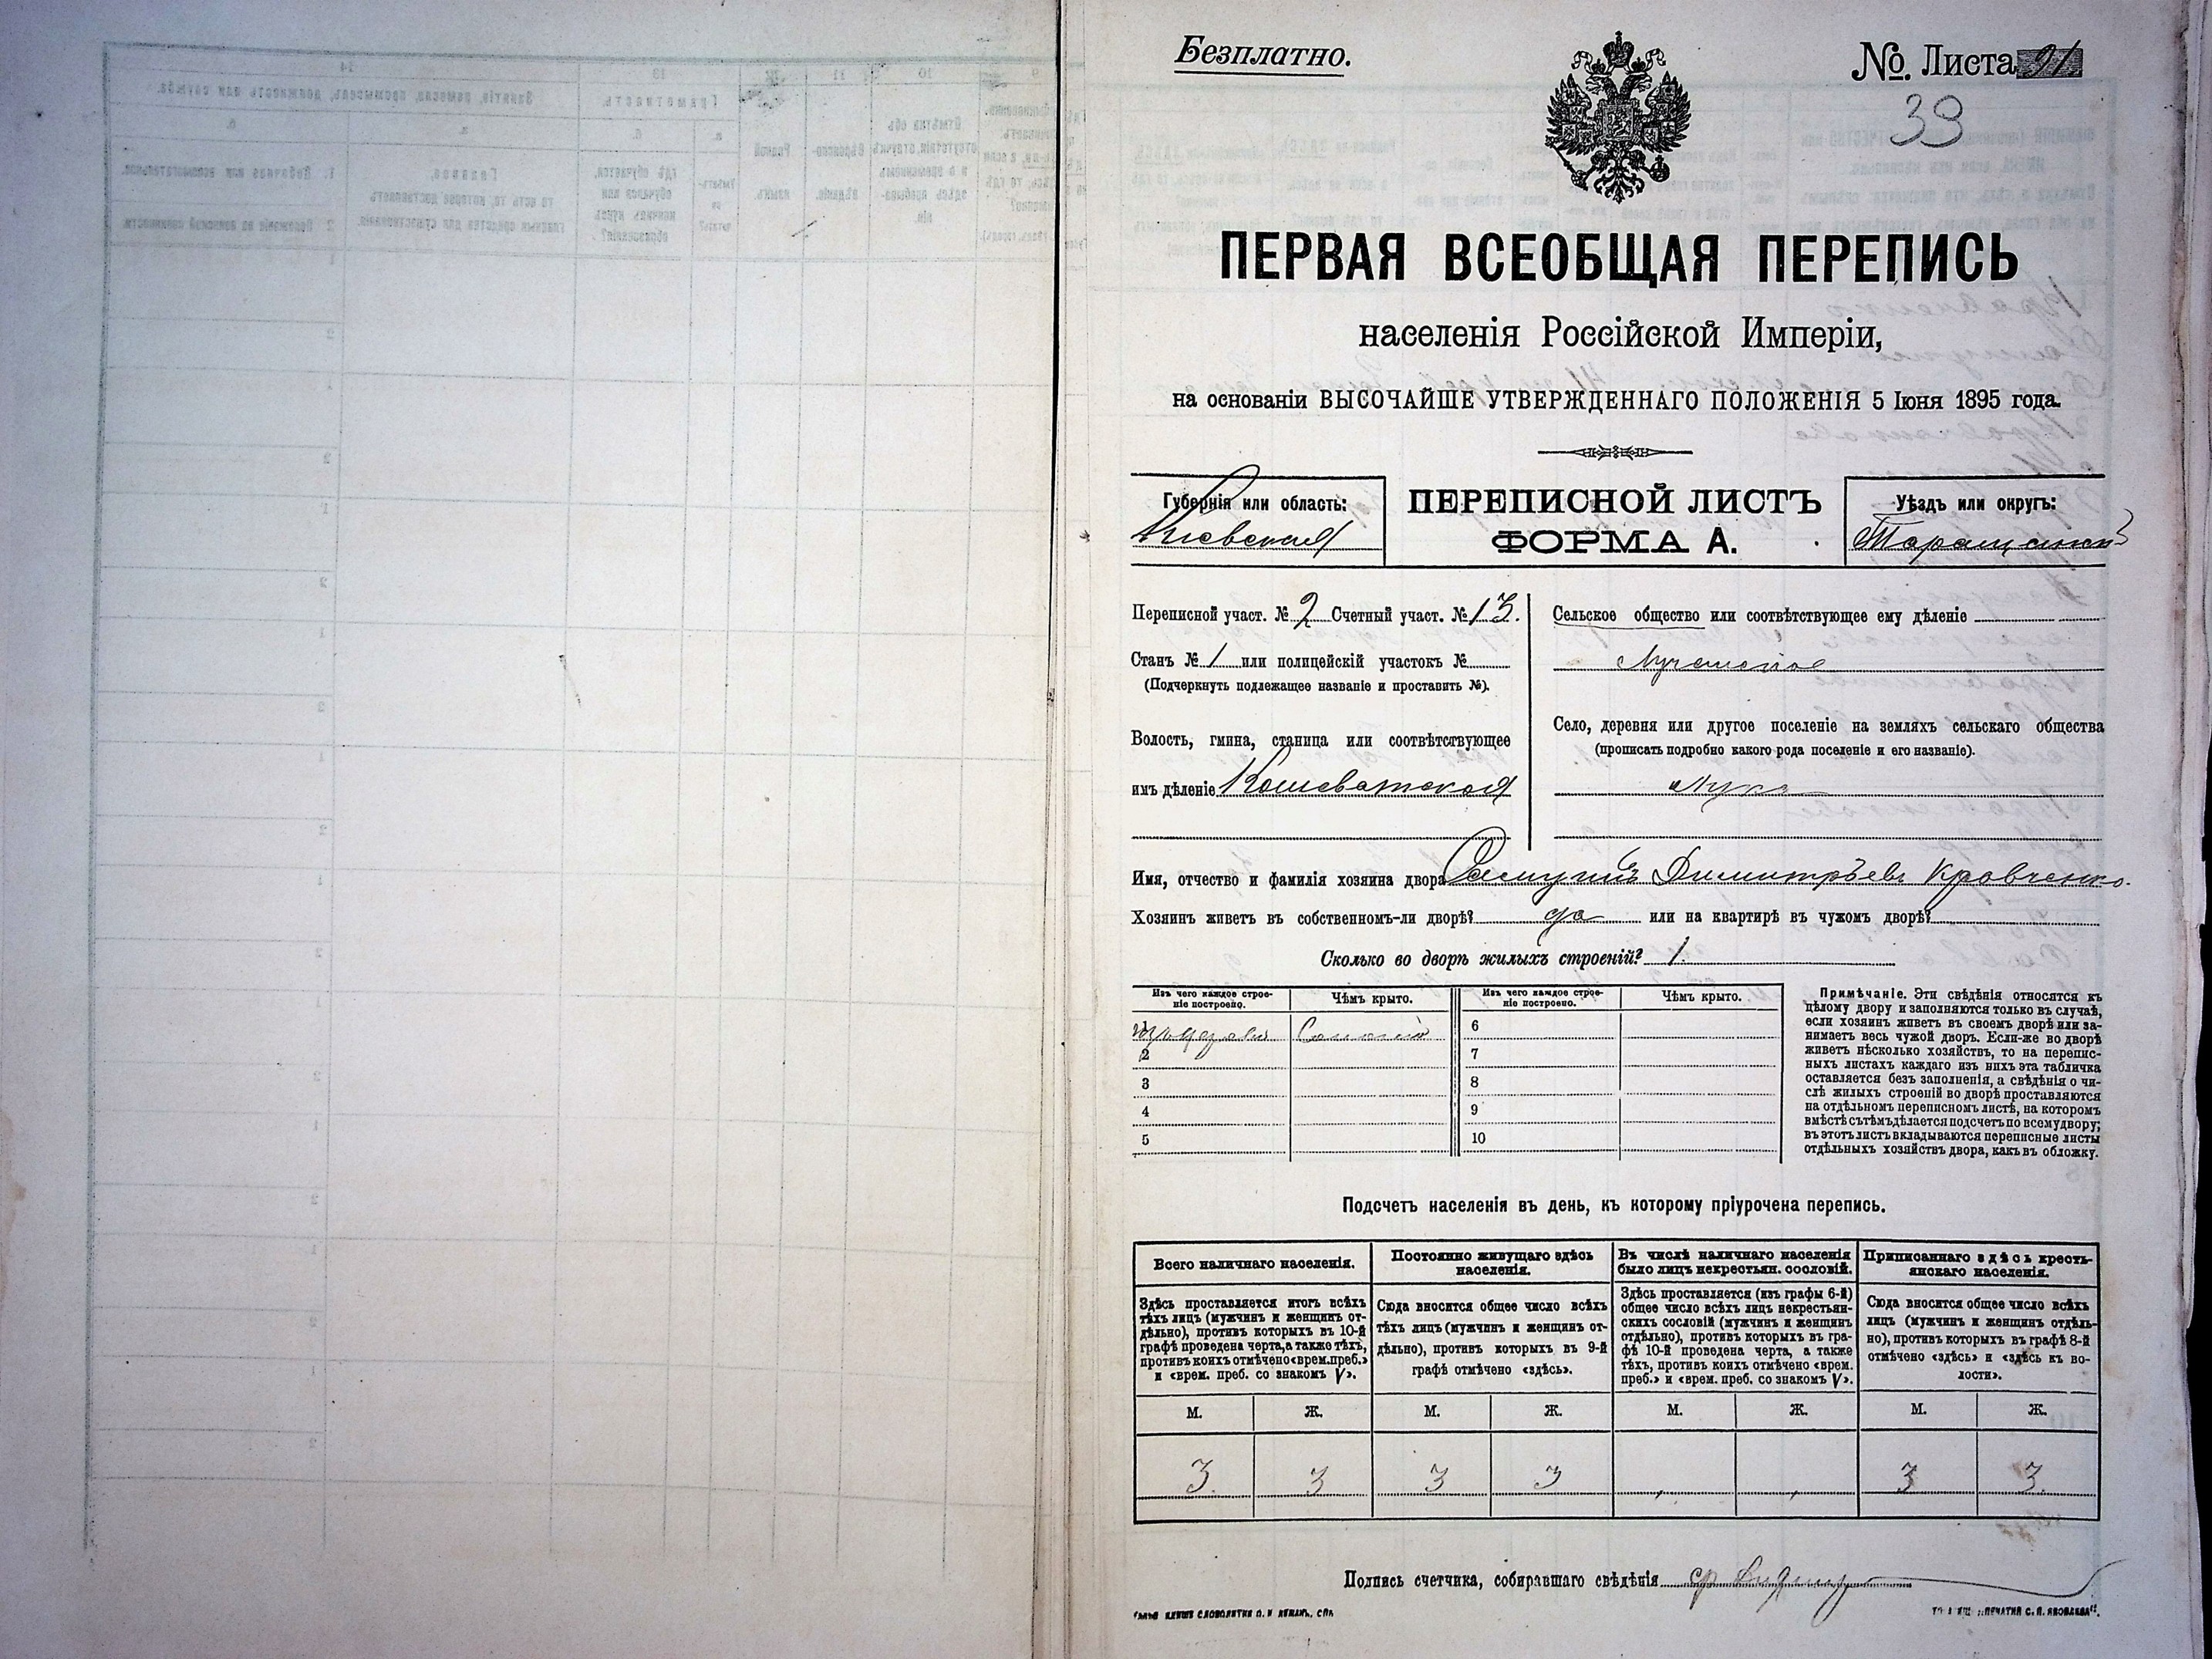 Безплатно.
№ Листа 21
39
ПЕРВАЯ ВСЕОБЩАЯ ПЕРЕПИСЬ
населенія Россійской Имперіи,
на основаніи ВЫСОЧАЙШЕ УТВЕРЖДЕННАГО ПОЛОЖЕНІЯ 5 Іюня 1895 года.
Губернія или область:
Кіевская
ПЕРЕПИСНОЙ ЛИСТЪ
ФОРМА А.
Уѣздъ или округъ:
Таращанскій
Переписной участ. № 2 Счетный участ. № 13.
Станъ № 1 или полицейскій участокъ №
(Подчеркнуть подлежащее названіе и проставить №).
Волость, гмина, станица или соотвѣтствующее
имъ дѣленіе Кошеватская
Сельское общество или соотвѣтствующее ему дѣленіе
Лучанское
Село, деревня или другое поселеніе на земляхъ сельскаго общества
(прописать подробно какого рода поселеніе и его названіе).
Лука
Имя, отчество и фамилія хозяина двора Самуилъ Димитріевъ Кравченко.
Хозяинъ живетъ въ собственномъ-ли дворѣ? да или на квартирѣ въ чужомъ дворѣ?
Сколько во дворѣ жилыхъ строеній? 1.
Изъ чего каждое строе-
ніе построено.
Чѣмъ крыто.
Изъ чего каждое строе-
ніе построено.
Чѣмъ крыто.
1 Соломою 6
2 7
3 8
4 9
5 10
Примѣчаніе. Эти свѣдѣнія относятся къ
цѣлому двору и заполняются только въ случаѣ,
если хозяинъ живетъ въ своемъ дворѣ или за-
нимаетъ весь чужой дворъ. Если-же во дворѣ
живетъ нѣсколько хозяйствъ, то на перепис-
ныхъ листахъ каждаго изъ нихъ эта табличка
оставляется безъ заполненія, а свѣдѣнія о чи-
слѣ жилыхъ строеній во дворѣ проставляются
на отдѣльномъ переписномъ листѣ, на которомъ
вмѣстѣ съ тѣмъ дѣлается подсчетъ по всему двору;
въ этотъ листъ вкладываются переписные листы
отдѣльныхъ хозяйствъ двора, какъ въ обложку.
Подсчетъ населенія въ день, къ которому пріурочена перепись.
Всего наличнаго населенія.
Здѣсь проставляется итогъ всѣхъ
тѣхъ лицъ (мужчинъ и женщинъ от-
дѣльно), противъ которыхъ въ 10-й
графѣ проведена черта, а также тѣхъ,
противъ коихъ отмѣчено «врем. преб.»
и «врем. преб. со знакомъ V».
Постоянно живущаго здѣсь
населенія.
Сюда вносится общее число всѣхъ
тѣхъ лицъ (мужчинъ и женщинъ от-
дѣльно), противъ которыхъ въ 9-й
графѣ отмѣчено «здѣсь».
Въ числѣ наличнаго населенія
было лицъ некрестьян. сословій.
Здѣсь проставляется (изъ графы 6-й)
общее число всѣхъ лицъ некрестьян-
скихъ сословій (мужчинъ и женщинъ
отдѣльно), противъ которыхъ въ гра-
фѣ 10-й проведена черта, а также
тѣхъ, противъ коихъ отмѣчено «врем.
преб.» и «врем. преб. со знакомъ V».
Приписаннаго здѣсь кресть-
янскаго населенія.
Сюда вносится общее число всѣхъ
лицъ (мужчинъ и женщинъ отдѣль-
но), противъ которыхъ въ графѣ 8-й
отмѣчено «здѣсь» и «здѣсь къ во-
лости».
М. Ж. М. Ж. М. Ж. М. Ж.
3. 3 3 3 3 3.
Подпись счетчика, собиравшаго свѣдѣнія